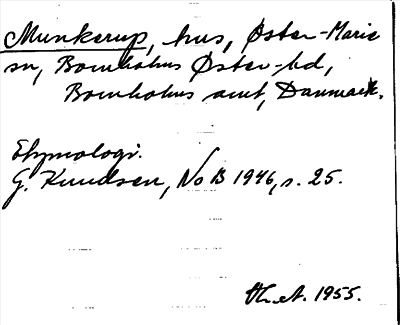 Munkerup, hus, Øster-Marie
sn, Bornholms Øster-hd,
Bornholms amt, Danmark.
Etymologi.
G. Knudsen, NoB 1946, s. 25.
1955.